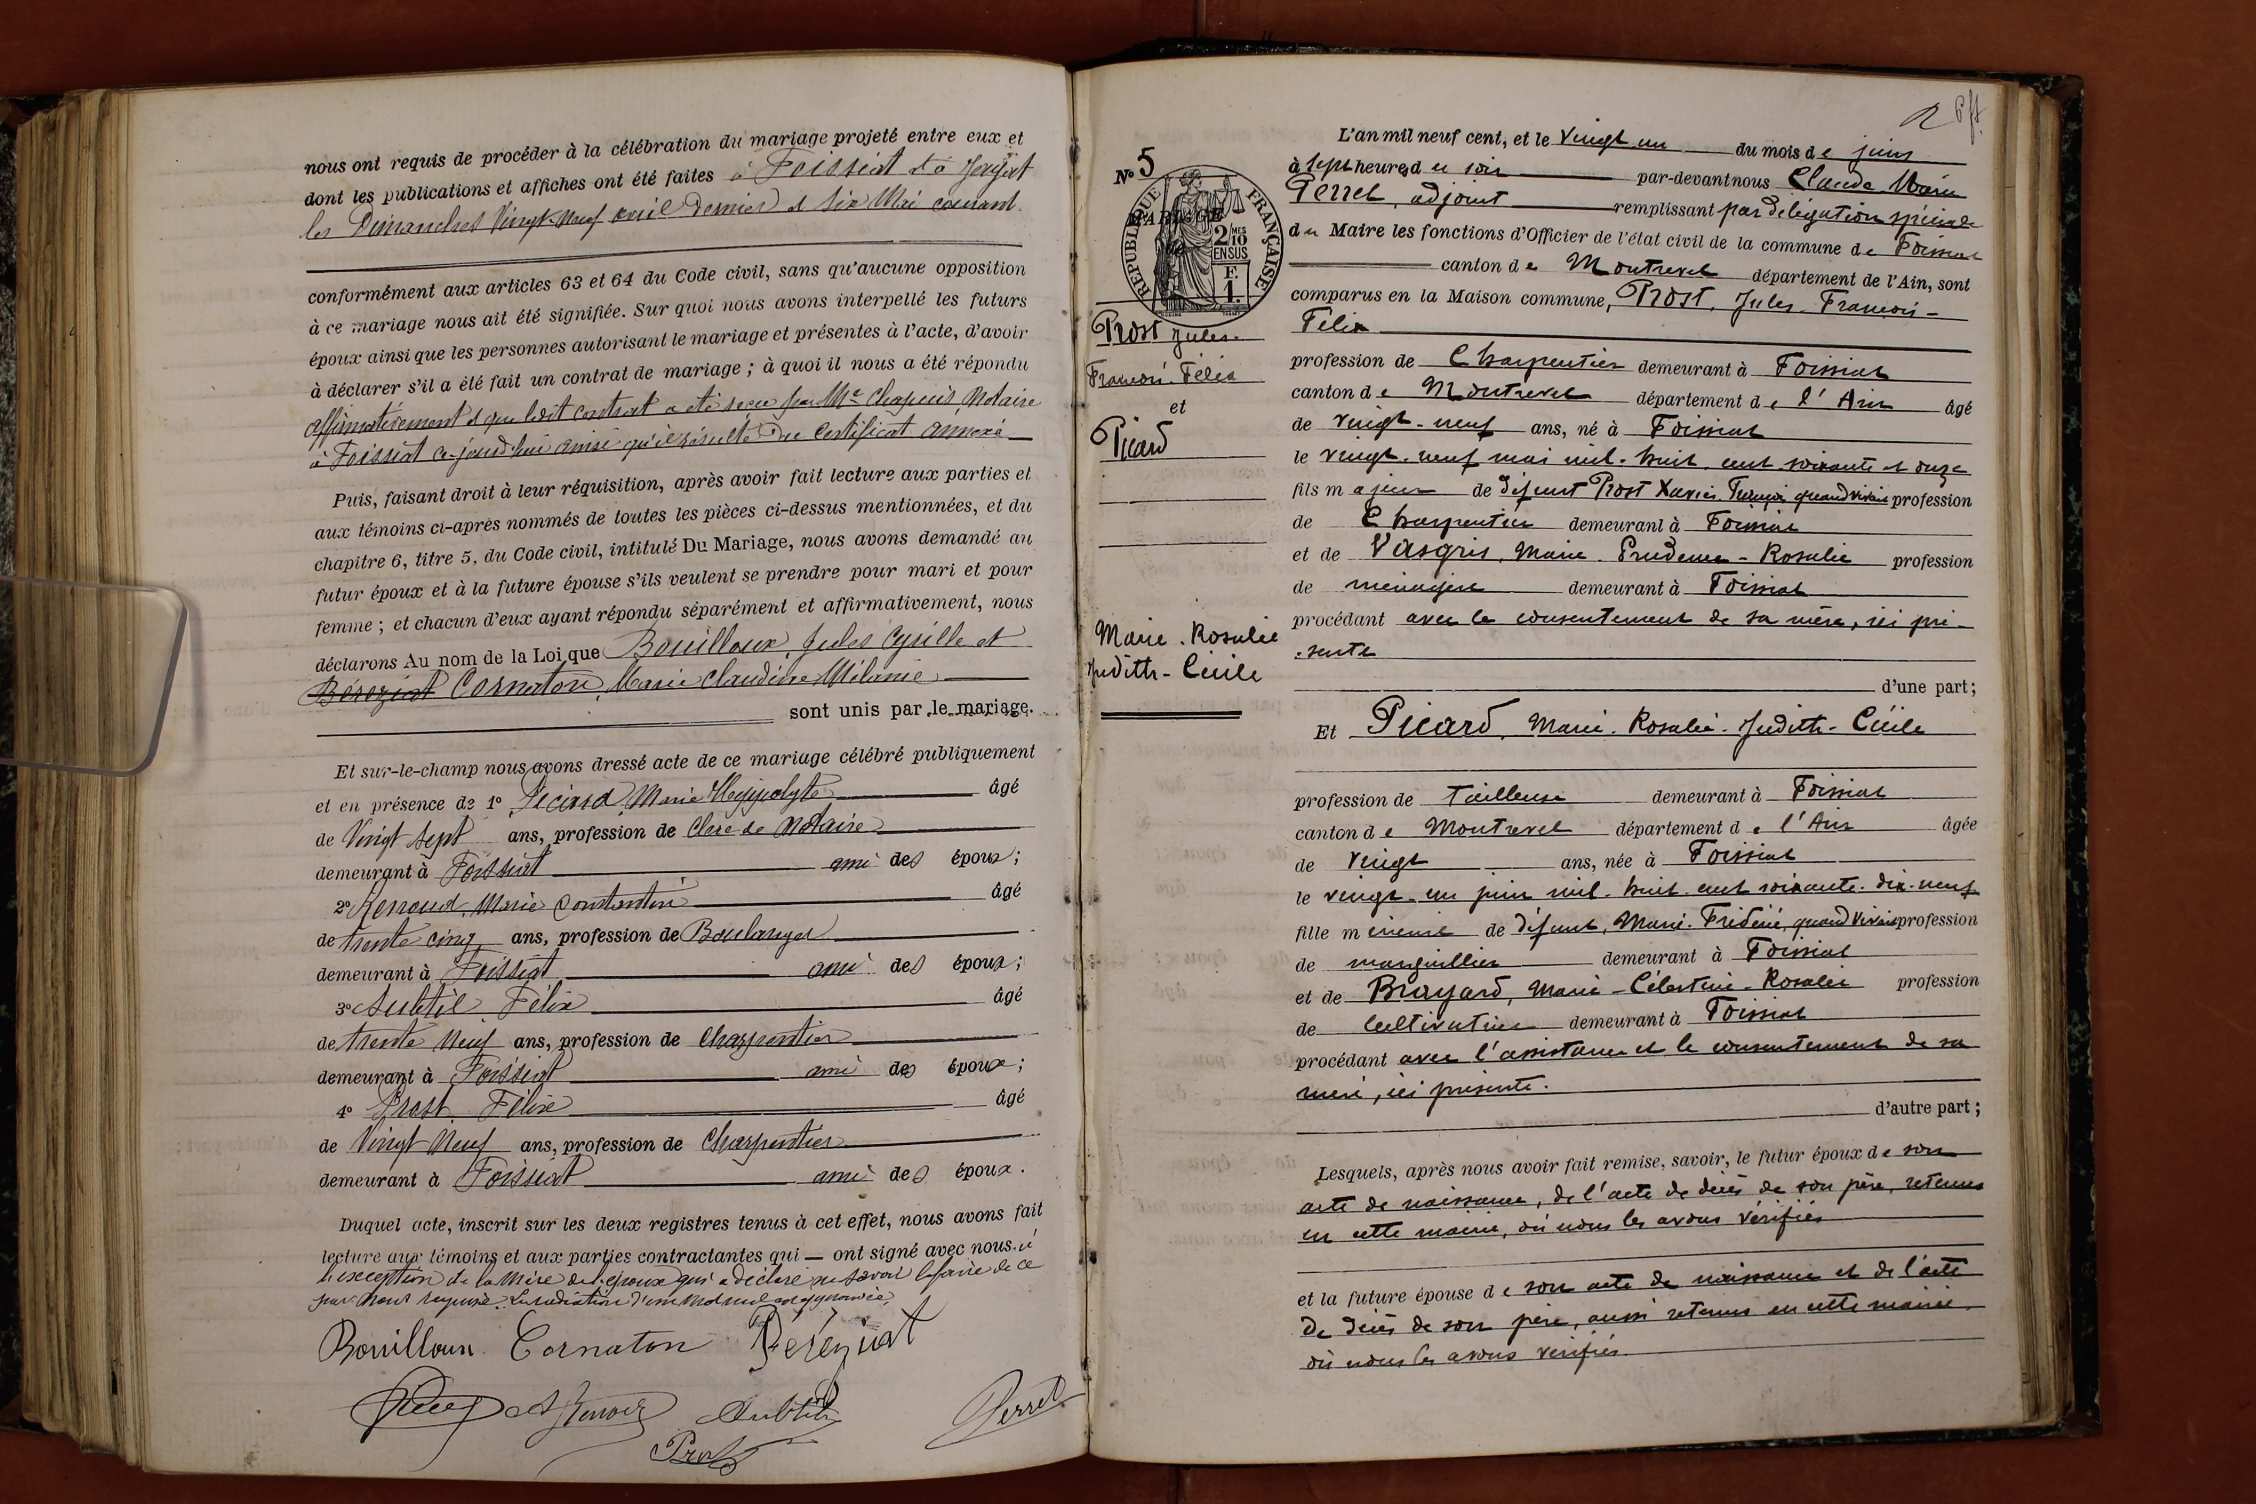 nous ont requis de procéder à la célébration du mariage projeté entre eux et
dont les publications et affiches ont été faites à Foissiat et à Jayat
les Dimanches Vingt-Neuf avril Dernier et Six Mai courant.
conformément aux articles 63 et 64 du Code civil, sans qu'aucune opposition
à ce mariage nous ait été signifiée. Sur quoi nous avons interpellé les futurs
époux ainsi que les personnes autorisant le mariage et présentes à l'acte, d'avoir
à déclarer s'il a été fait un contrat de mariage ; à quoi il nous a été répondu
affirmativement et que ledit contrat a été reçu par Me Chapuis, Notaire
à Foissiat ce jourd'hui ainsi qu'il résulte Du Certificat annexé
Puis, faisant droit à leur réquisition, après avoir fait lecture aux parties et
aux témoins ci-après nommés de toutes les pièces ci-dessus mentionnées, et du
chapitre 6, titre 5, du Code civil, intitulé Du Mariage, nous avons demandé au
futur époux et à la future épouse s'ils veulent se prendre pour mari et pour
femme ; et chacun d'eux ayant répondu séparément et affirmativement, nous
déclarons Au nom de la Loi que Bouilloux, Jules Cyrille et
Béreziat Cornaton, Marie Claudine Mélanie
sont unis par le mariage.
Et sur-le-champ nous avons dressé acte de ce mariage célébré publiquement
et en présence de 1° Picard Marie Hyppolyte âgé
de Vingt sept ans, profession de Clerc de Notaire
demeurant à Foissiat ami des époux ;
2° Renoud, Marie Constantin âgé
de trente cinq ans, profession de Boulanger
demeurant à Foissiat ami des époux ;
3° Subtil Félix âgé
de trente Neuf ans, profession de Charpentier
demeurant à Foissiat ami des époux ;
4° Prost Félix âgé
de Vingt Neuf ans, profession de Charpentier
demeurant à Foissiat ami des époux.
Duquel acte, inscrit sur les deux registres tenus à cet effet, nous avons fait
lecture aux témoins et aux parties contractantes qui — ont signé avec nous à
l'exception de la Mère de l'époux qui a déclaré ne savoir le faire de ce
par nous requise. La radiation d'un mot nul est approuvée.
Bouilloux Cornaton Béréziat
Renoud Subtil Perret
Prost
N° 5
MARIAGE
RÉPUBLIQUE FRANÇAISE
2/10 MES
EN SUS
F.
1.
Prost Jules
François Félix
et
Picard
Marie Rosalie
Judith-Cécile
L'an mil neuf cent, et le vingt un du mois de juin
à sept heures du soir par-devant nous Claude Marie
Perret, adjoint remplissant par délégation spéciale
du Maire les fonctions d'Officier de l'état civil de la commune de Foissiat
canton de Montrevel département de l'Ain, sont
comparus en la Maison commune, Prost, Jules François-
Félix
profession de Charpentier demeurant à Foissiat
canton de Montrevel département de l'Ain âgé
de vingt-neuf ans, né à Foissiat
le vingt-neuf mai mil-huit cent soixante et onze
fils majeur de défunt Prost Xavier François quand vivait profession
de Charpentier demeurant à Foissiat
et de Vasgris, Marie Prudence-Rosalie profession
de ménagère demeurant à Foissiat
procédant avec le consentement de sa mère, ici pré-
-sente
d'une part ;
Et Picard, Marie Rosalie Judith-Cécile
profession de Tailleuse demeurant à Foissiat
canton de Montrevel département de l'Ain âgée
de vingt ans, née à Foissiat
le vingt-un juin mil-huit cent soixante-dix-neuf
fille mineure de défunt, Marie Frédéric, quand vivait profession
de marguillier demeurant à Foissiat
et de Brayard, Marie-Célestine-Rosalie profession
de Cultivatrice demeurant à Foissiat
procédant avec l'assistance et le consentement de sa
mère, ici présente.
d'autre part ;
Lesquels, après nous avoir fait remise, savoir, le futur époux de son
acte de naissance, de l'acte de décès de son père, retenus
en cette mairie, où nous les avons vérifiés
et la future épouse de son acte de naissance et de l'acte
de décès de son père, aussi retenus en cette mairie,
où nous les avons vérifiés.